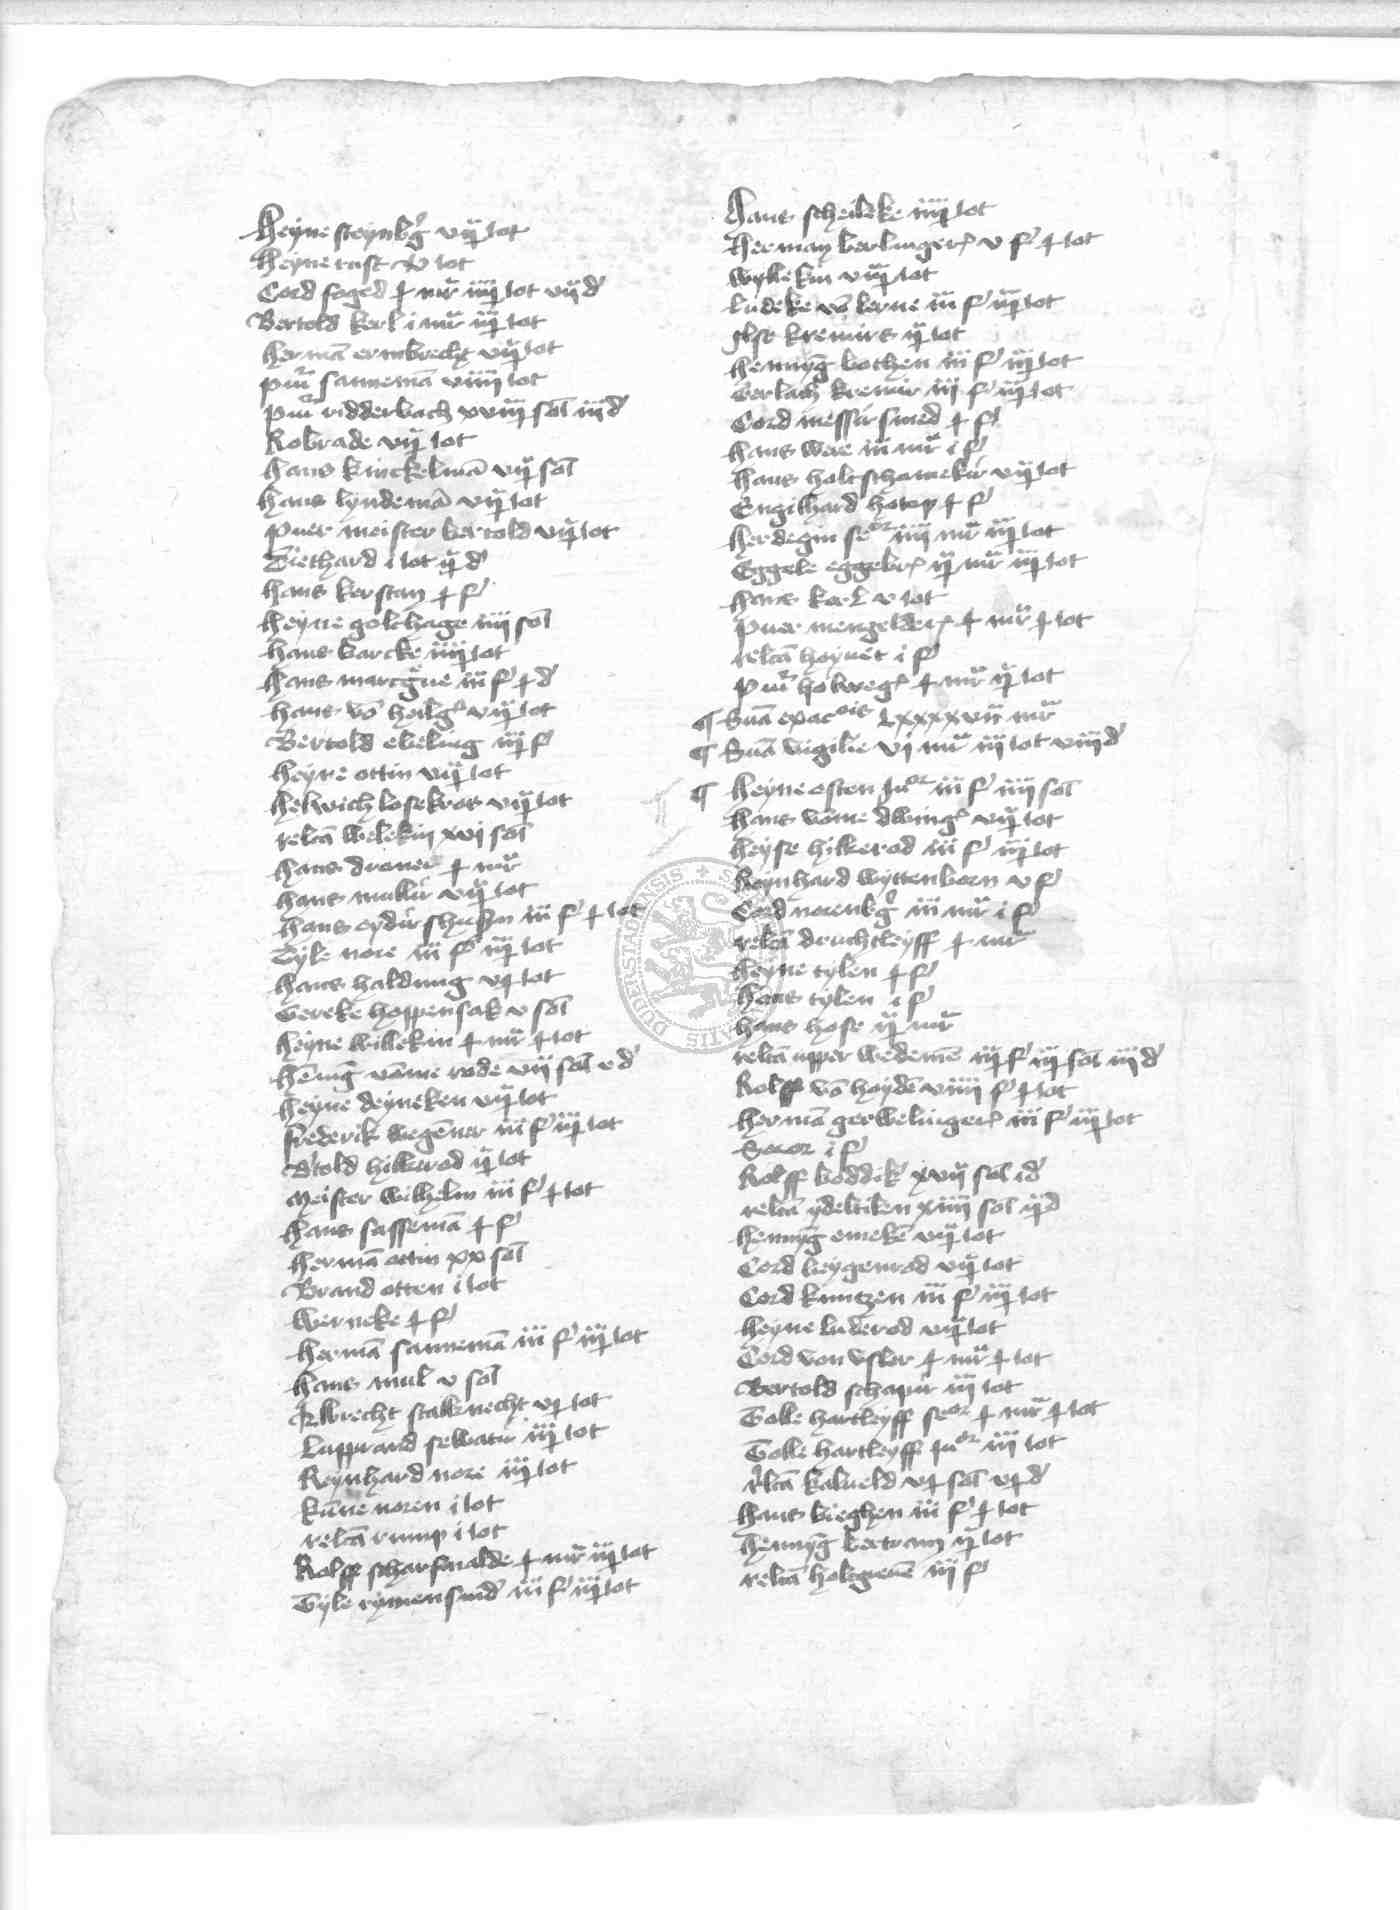 Heyne steynbg̊ vij lot
heyne rust v lot
Cord foged j mr̃ iiij lot vij d
Bertold kerl i mr̃ iij lot
hermã ermbrecht vij lot
pūr sannemã viiij lot
pūr ridderbach xviij sol iij d
Kobrade vij lot
hans kinckelmã vij sol
hans lyndemã vij lot
puer meister bertold vij lot
Diethard i lot ij d
hans kerstan j f
heyne golthage iiij sol
hans barcke iiij lot
hans marcgũe iij f j d
hans võ heilg vij lot
Bertold ebeling iij f
heyne ottin vij lot
helwich losekros vij lot
relcã welekin xvj sol
hans droner j mr̃
hans mullir vij lot
hans oydirshusin iij f j lot
Tyle nore iij f iij lot
hans haldung vj lot
Gereke hoppensak v sol
heyne willekin j mr̃ j lot
hẽnig vãme rode vij sol v d
heyne deyneken vij lot
frederik wegẽner iij f iij lot
Btold hilkerod ij lot
Meister wilhelm iij f j lot
hans sassemã j f
hermã ottin xx sol
Brand otten i lot
Werneke j f
hermã sannemã iij f iij lot
hans mul v sol
Albrecht stalknecht vj lot
Lupprand selbatir iij lot
Reynhard nore iij lot
kũne noren i lot
relcã rump i lot
Rolff scharfnalde j mr̃ iij lot
Tyle rymensnid iij f iij lot
Hans scheibeke iiij lot
Herman berlinger v f j lot
Wyllekin viij lot
Ludeke võ lerne iij f iij lot
Ilse kremirs ij lot
hennyg bothen iij f iij lot
Gerlach kremir iij f iij lot
Cord messirsmed j f
hans were iij mr̃ i f
hans holtschomekir vij lot
Engilhard hotop j f
herdegin se^or iiij mr̃ iij lot
Eggele eggebr ij mr̃ iij lot
hans kerl v lot
puer mengelder j mr̃ j lot
relcã hoynet i f
pūr holweg j mr̃ ij lot
¶ Sũã expac^ois Lxxxxvij mr̃
¶ Sũã vigilie vj mr̃ iij lot viiij d
¶ heyne osten Ju^or iij f iiij sol
hans võme dwing vij lot
heyse hilkerod iij f iij lot
Reynhard wyttenborn v f
Cord norenbg̊ iij mr̃ i f
relcã druchtleyff j mr̃
heyne tylen j f
hans tylen i f
hans hose ij mr̃
relcã upper wedemẽ iij f iij sol iij d
Rolff võ hoydẽ viiij f j lot
hermã gerwelinger iij f iij lot
Socer i f
Rolff boddik xvij sol i d
relcã ydeltilen xiiij sol ij d
hennyg emekẽ vij lot
Cord beygenrod vij lot
Cord kuntzen iij f iij lot
heyne luderod vij lot
Cord von vsler j mr̃ j lot
Bertold schapir iij lot
Tolle hartleyff se^or j mr̃ j lot
Tolle hartleyff Ju^or iij lot
Rlcã kalueld vj sol vj d
hans bieghen iij f j lot
hennyg bertram ij lot
relcã holtgeuẽ iij f
DUDERSTADENSIS